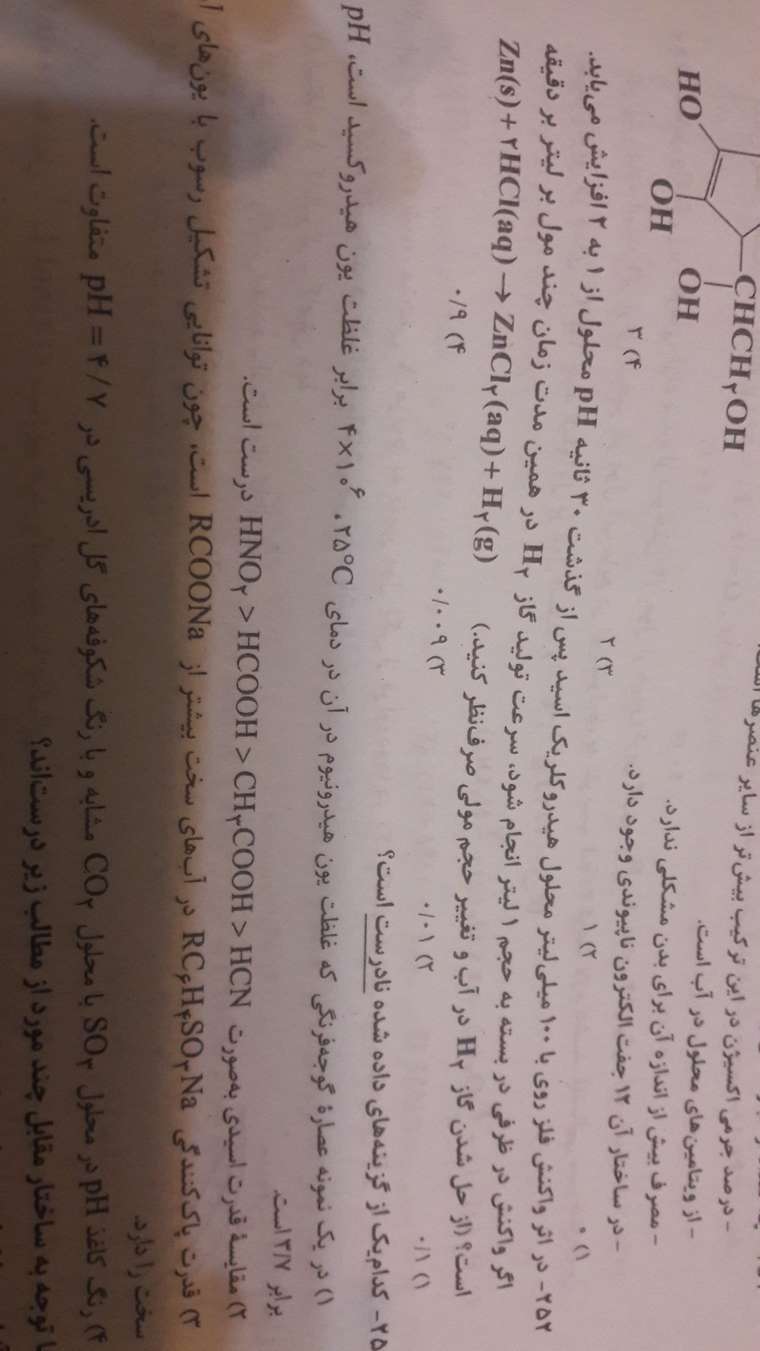 CHCH₂OH
HO OH OH
- درصد جرمی اکسیژن در این ترکیب بیش‌تر از سایر عنصرها است.
- از ویتامین‌های محلول در آب است.
- مصرف بیش از اندازه آن برای بدن مشکلی ندارد.
- در ساختار آن ۱۲ جفت الکترون ناپیوندی وجود دارد.
۱) ۰ ۲) ۱ ۳) ۲ ۴) ۳
۲۵۲- در اثر واکنش فلز روی با ۱۰۰ میلی‌لیتر محلول هیدروکلریک اسید پس از گذشت ۳۰ ثانیه pH محلول از ۱ به ۲ افزایش می‌یابد.
اگر واکنش در ظرفی در بسته به حجم ۱ لیتر انجام شود، سرعت تولید گاز H₂ در همین مدت زمان چند مول بر لیتر بر دقیقه
است؟ (از حل شدن گاز H₂ در آب و تغییر حجم مولی صرف‌نظر کنید.) Zn(s) + ۲HCl(aq) → ZnCl₂(aq) + H₂(g)
۱) ۰/۱ ۲) ۰/۰۱ ۳) ۰/۰۰۹ ۴) ۰/۹
کدام‌یک از گزینه‌های داده شده نادرست است؟
۱) در یک نمونه عصارهٔ گوجه‌فرنگی که غلظت یون هیدرونیوم در آن در دمای ۲۵°C، ۴×۱۰⁶ برابر غلظت یون هیدروکسید است، pH
برابر ۳/۷ است.
۲) مقایسهٔ قدرت اسیدی به‌صورت HNO₂ > HCOOH > CH₃COOH > HCN درست است.
۳) قدرت پاک‌کنندگی RC₆H₄SO₃Na در آب‌های سخت بیشتر از RCOONa است، چون توانایی تشکیل رسوب با یون‌های
سخت را دارد.
۴) رنگ کاغذ pH در محلول SO₃ با محلول CO₂ مشابه و با رنگ شکوفه‌های گل ادریسی در pH = ۴/۷ متفاوت است.
با توجه به ساختار مقابل چند مورد از مطالب زیر درست‌اند؟